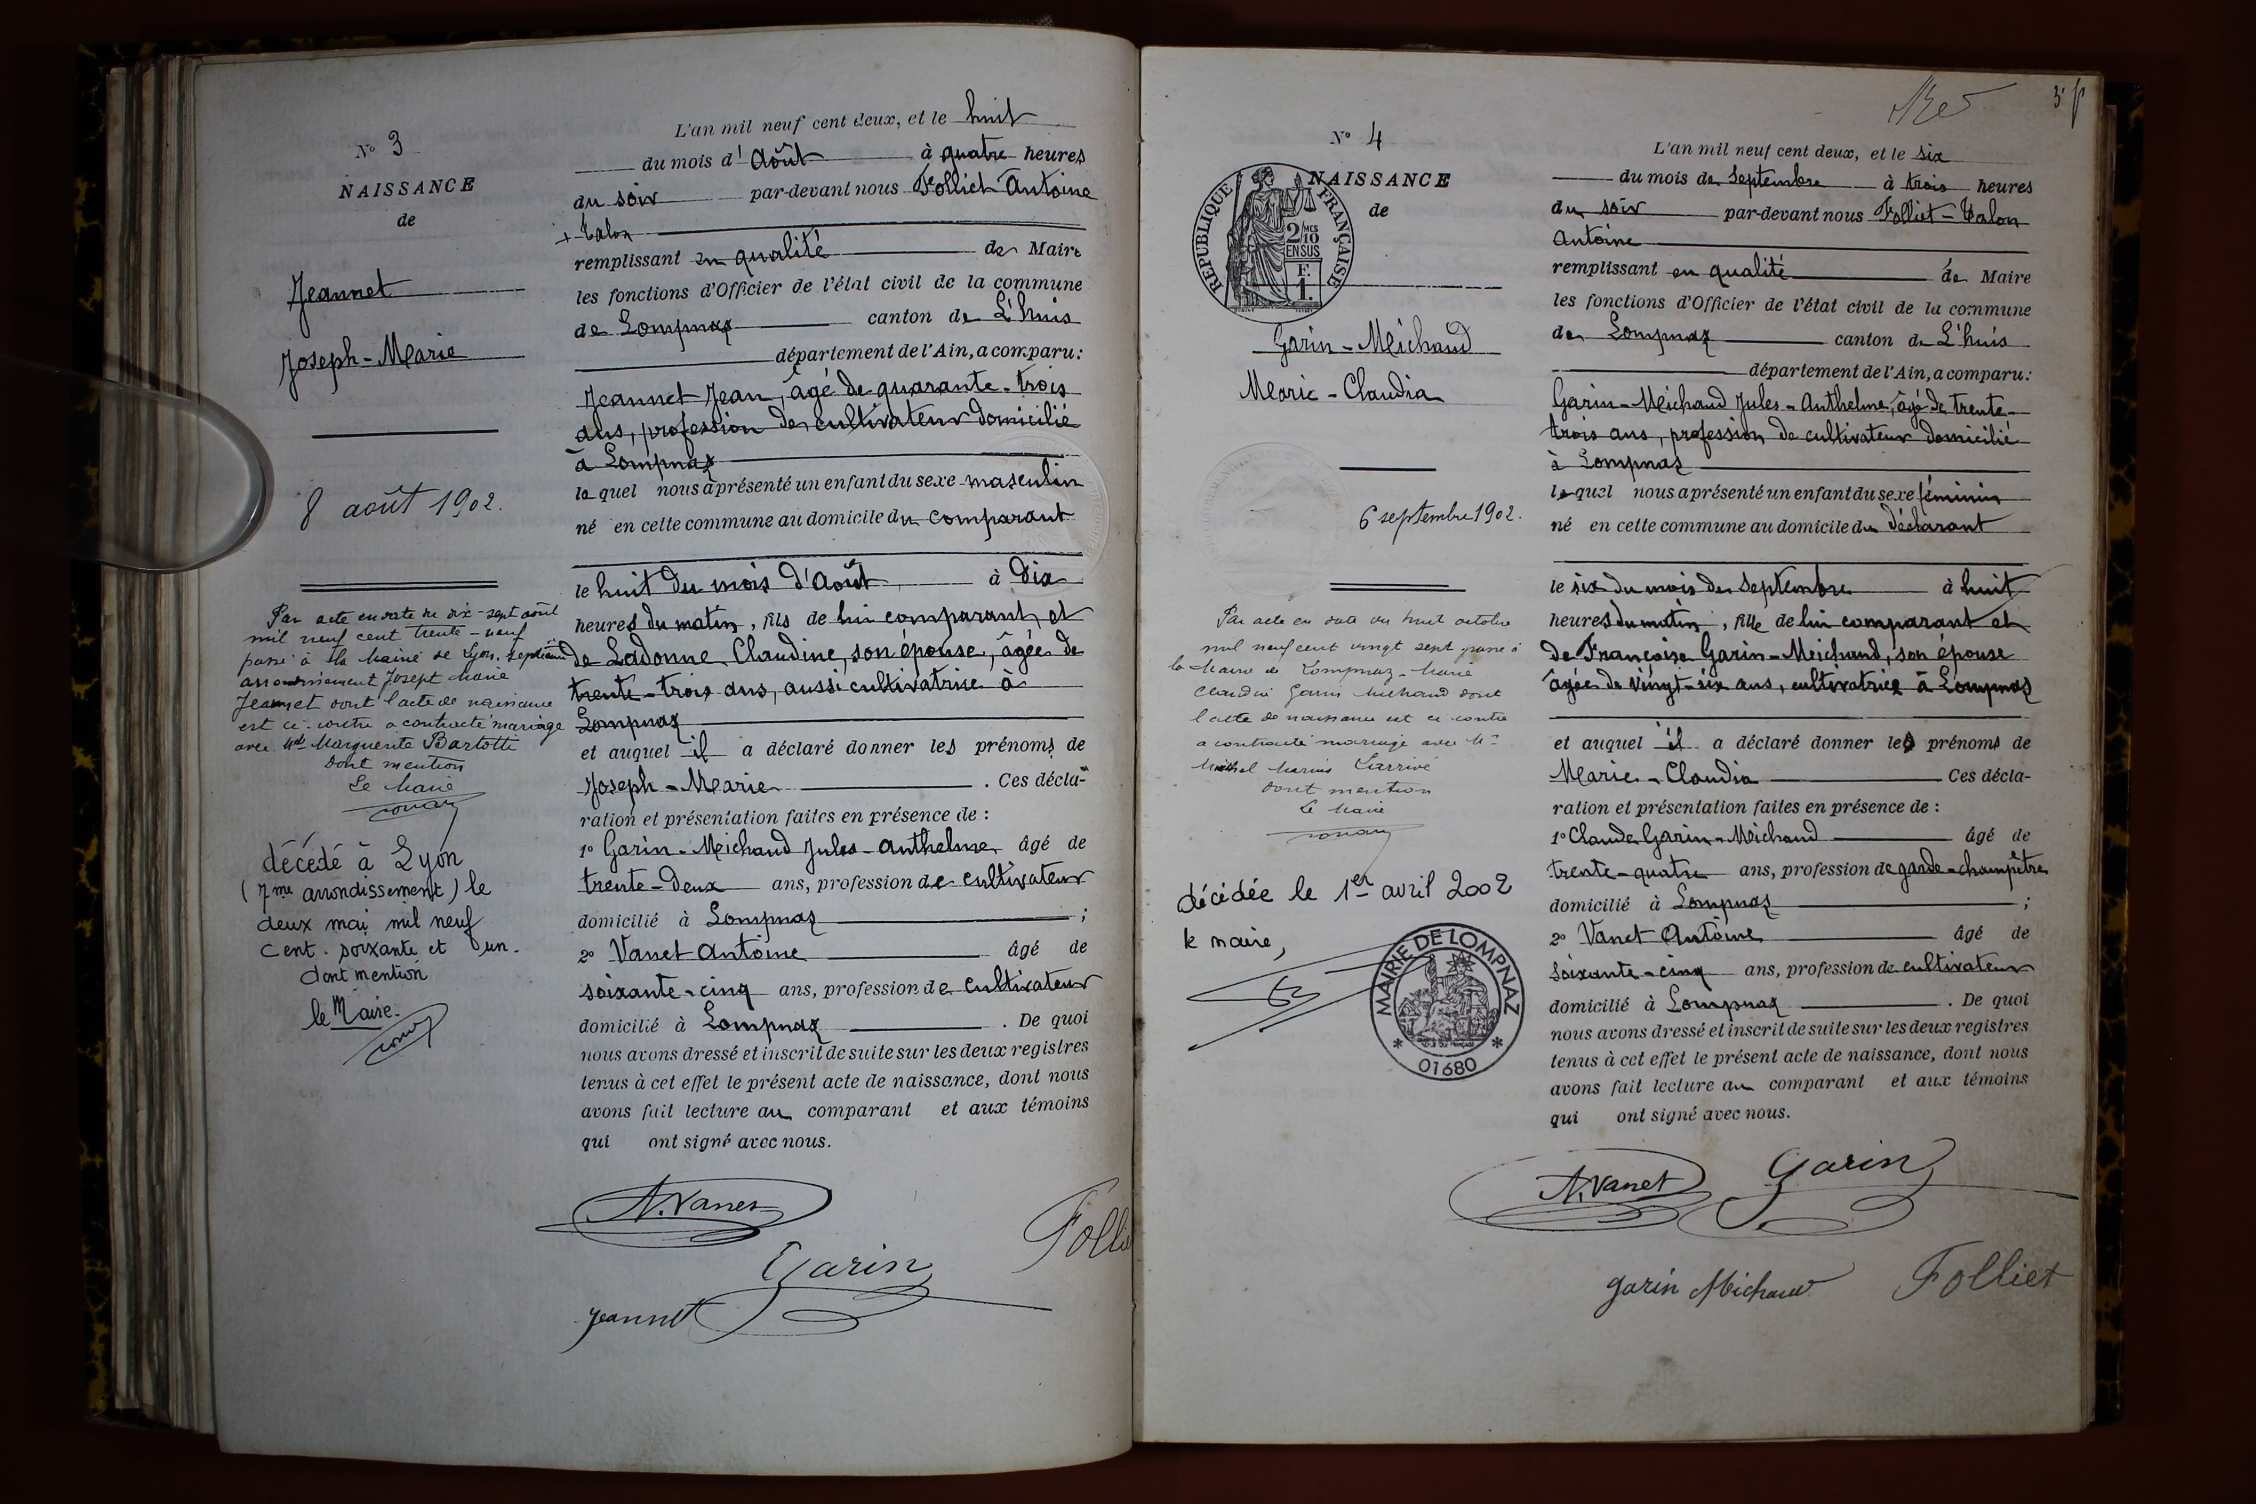 N° 3
NAISSANCE
de
Jeannet
Joseph-Marie
8 août 1902.
Par acte en date du dix-sept août
mil neuf cent trente-neuf
passé à la Mairie de Lyon, septième
arrondissement Joseph Marie
Jeannet dont l'acte de naissance
est ci-contre a contracté mariage
avec Marguerite Bartotti
Dont mention
Le Maire
décédé à Lyon
(7me arrondissement) le
deux mai mil neuf
cent. soixante et un.
dont mention
le Maire.
L'an mil neuf cent deux, et le huit
du mois d'Août à quatre heures
du soir par-devant nous Folliet Antoine
+ Talon
remplissant en qualité de Maire
les fonctions d'Officier de l'état civil de la commune
de Lompnaz canton de L'huis
département de l'Ain, a comparu:
Jeannet Jean, âgé de quarante-trois
ans, profession de cultivateur domicilié
à Lompnaz
lequel nous a présenté un enfant du sexe masculin
né en cette commune au domicile du comparant
le huit du mois d'Août à dix
heures du matin, fils de lui comparant et
de Ladonne Claudine, son épouse, âgée de
trente-trois ans, aussi cultivatrice à
Lompnaz
et auquel il a déclaré donner les prénoms de
Joseph-Marie. Ces décla-
ration et présentation faites en présence de :
1° Garin-Michaud Jules-Anthelme âgé de
trente-deux ans, profession de cultivateur
domicilié à Lompnaz ;
2° Vanet Antoine âgé de
soixante-cinq ans, profession de cultivateur
domicilié à Lompnaz. De quoi
nous avons dressé et inscrit de suite sur les deux registres
tenus à cet effet le présent acte de naissance, dont nous
avons fait lecture au comparant et aux témoins
qui ont signé avec nous.
A. Vanet
Garin
Folli
Jeannet
3e
N° 4
NAISSANCE
de
RÉPUBLIQUE FRANÇAISE
2/10 MES
EN SUS
F.
1.
Garin-Michaud
Marie-Claudia
6 septembre 1902.
Par acte en date du huit octobre
mil neuf cent vingt sept passé à
la Mairie de Lompnaz-Marie
Claudia Garin Michaud dont
l'acte de naissance est ci-contre
a contracté mariage avec Mr
Michel Marius Larrivé
dont mention
Le Maire
décédée le 1er avril 2002
le maire,
MAIRIE DE LOMPNAZ
* 01680 *
L'an mil neuf cent deux, et le six
du mois de Septembre à trois heures
du soir par-devant nous Folliet-Talon
Antoine
remplissant en qualité de Maire
les fonctions d'Officier de l'état civil de la commune
de Lompnaz canton de L'huis
département de l'Ain, a comparu:
Garin-Michaud Jules-Anthelme, âgé de trente-
trois ans, profession de cultivateur domicilié
à Lompnaz
lequel nous a présenté un enfant du sexe féminin
né en cette commune au domicile du déclarant
le six du mois de Septembre à huit
heures du matin, fille de lui comparant et
de Françoise Garin-Michaud, son épouse
âgée de vingt-six ans, cultivatrice à Lompnaz
et auquel il a déclaré donner les prénoms de
Marie-Claudia Ces décla-
ration et présentation faites en présence de :
1° Claude Garin-Michaud âgé de
trente-quatre ans, profession de garde-champêtre
domicilié à Lompnaz ;
2° Vanet Antoine âgé de
soixante-cinq ans, profession de cultivateur
domicilié à Lompnaz. De quoi
nous avons dressé et inscrit de suite sur les deux registres
tenus à cet effet le présent acte de naissance, dont nous
avons fait lecture au comparant et aux témoins
qui ont signé avec nous.
A. Vanet
Garin
garin Michaud
Folliet